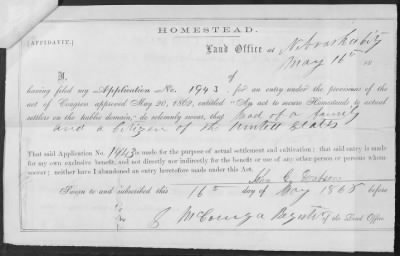 HOMESTEAD.
(AFFIDAVIT.)
Land Office at Nebraska City
May 16th 18
I, of
having filed my Application No. 1943, for an entry under the provisions of the
act of Congress approved May 20, 1862, entitled "An act to secure Homesteads to actual
settlers on the public domain," do solemnly swear, that head of a family
and a citizen of the United States
That said Application No. 1943 is made for the purpose of actual settlement and cultivation; that said entry is made
for my own exclusive benefit, and not directly nor indirectly for the benefit or use of any other person or persons whom-
soever; neither have I abandoned an entry heretofore made under this Act.
John
Sworn to and subscribed this 16th day of May 1865 before
Register of the Land Office